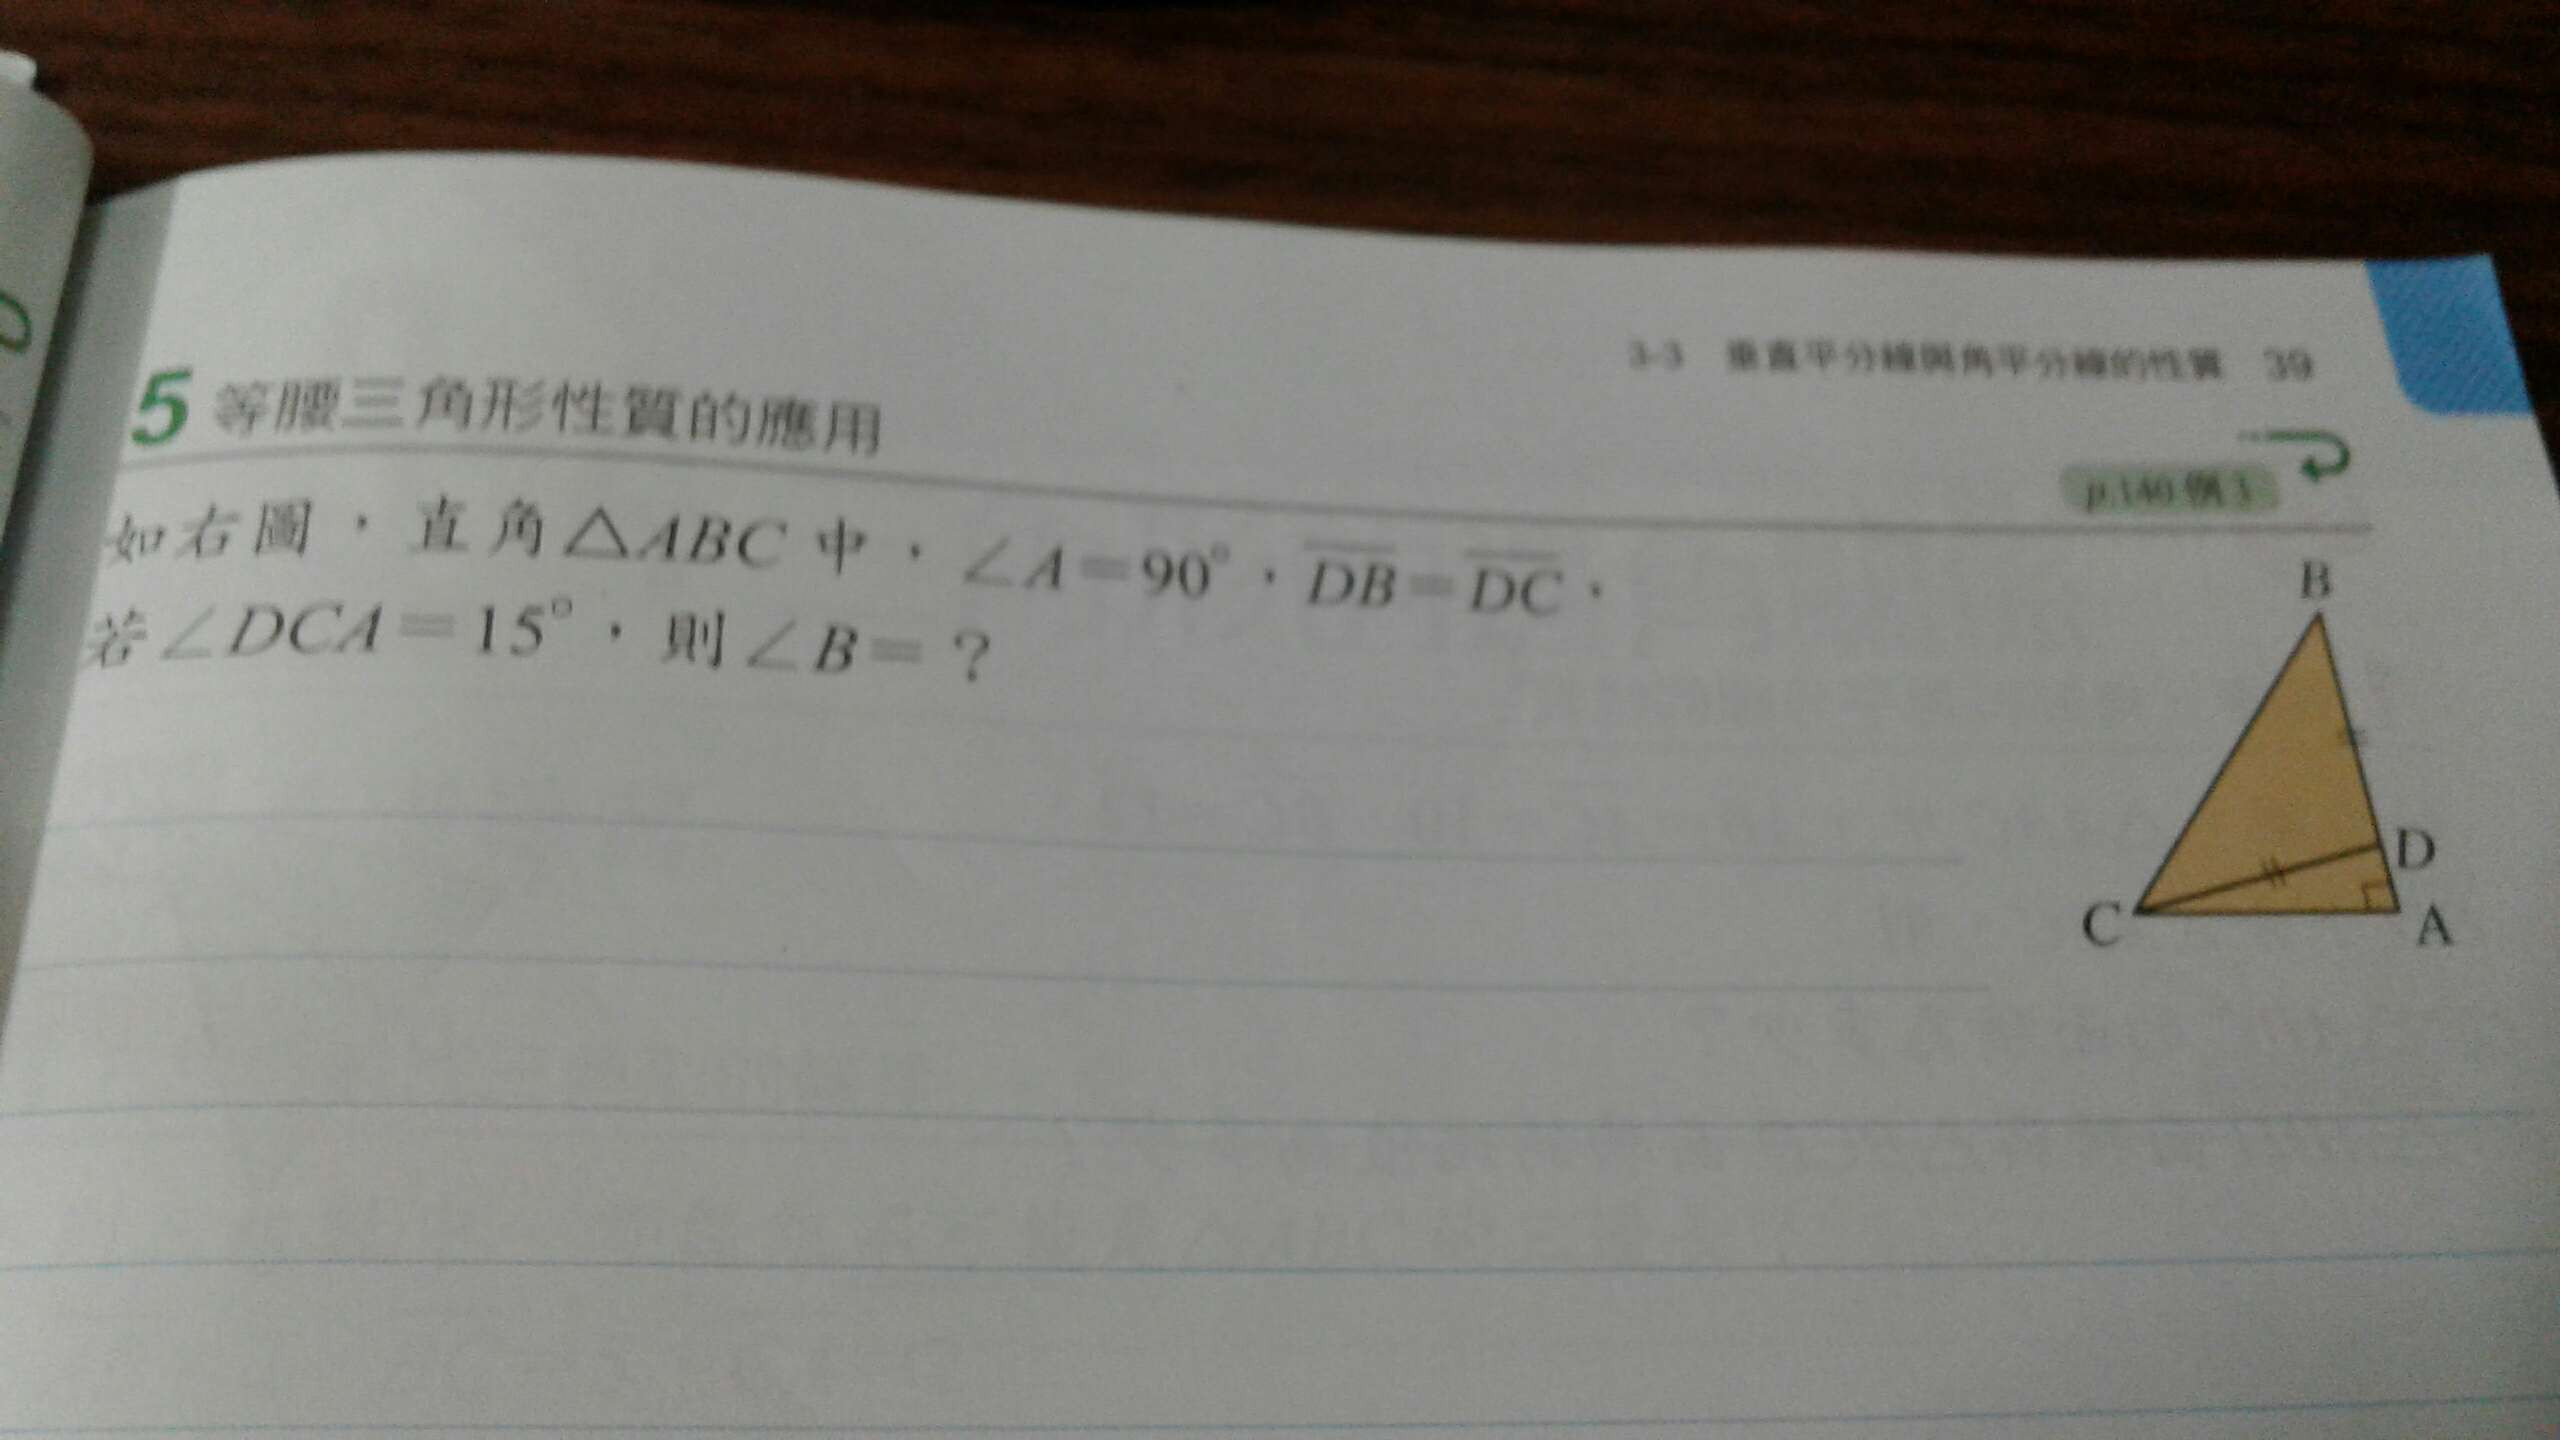 3-3 垂直平分線與角平分線的性質 39
5 等腰三角形性質的應用
p.140 例3
如右圖，直角△ABC中，∠A=90°，DB=DC，
若∠DCA=15°，則∠B=？
B
D
C
A